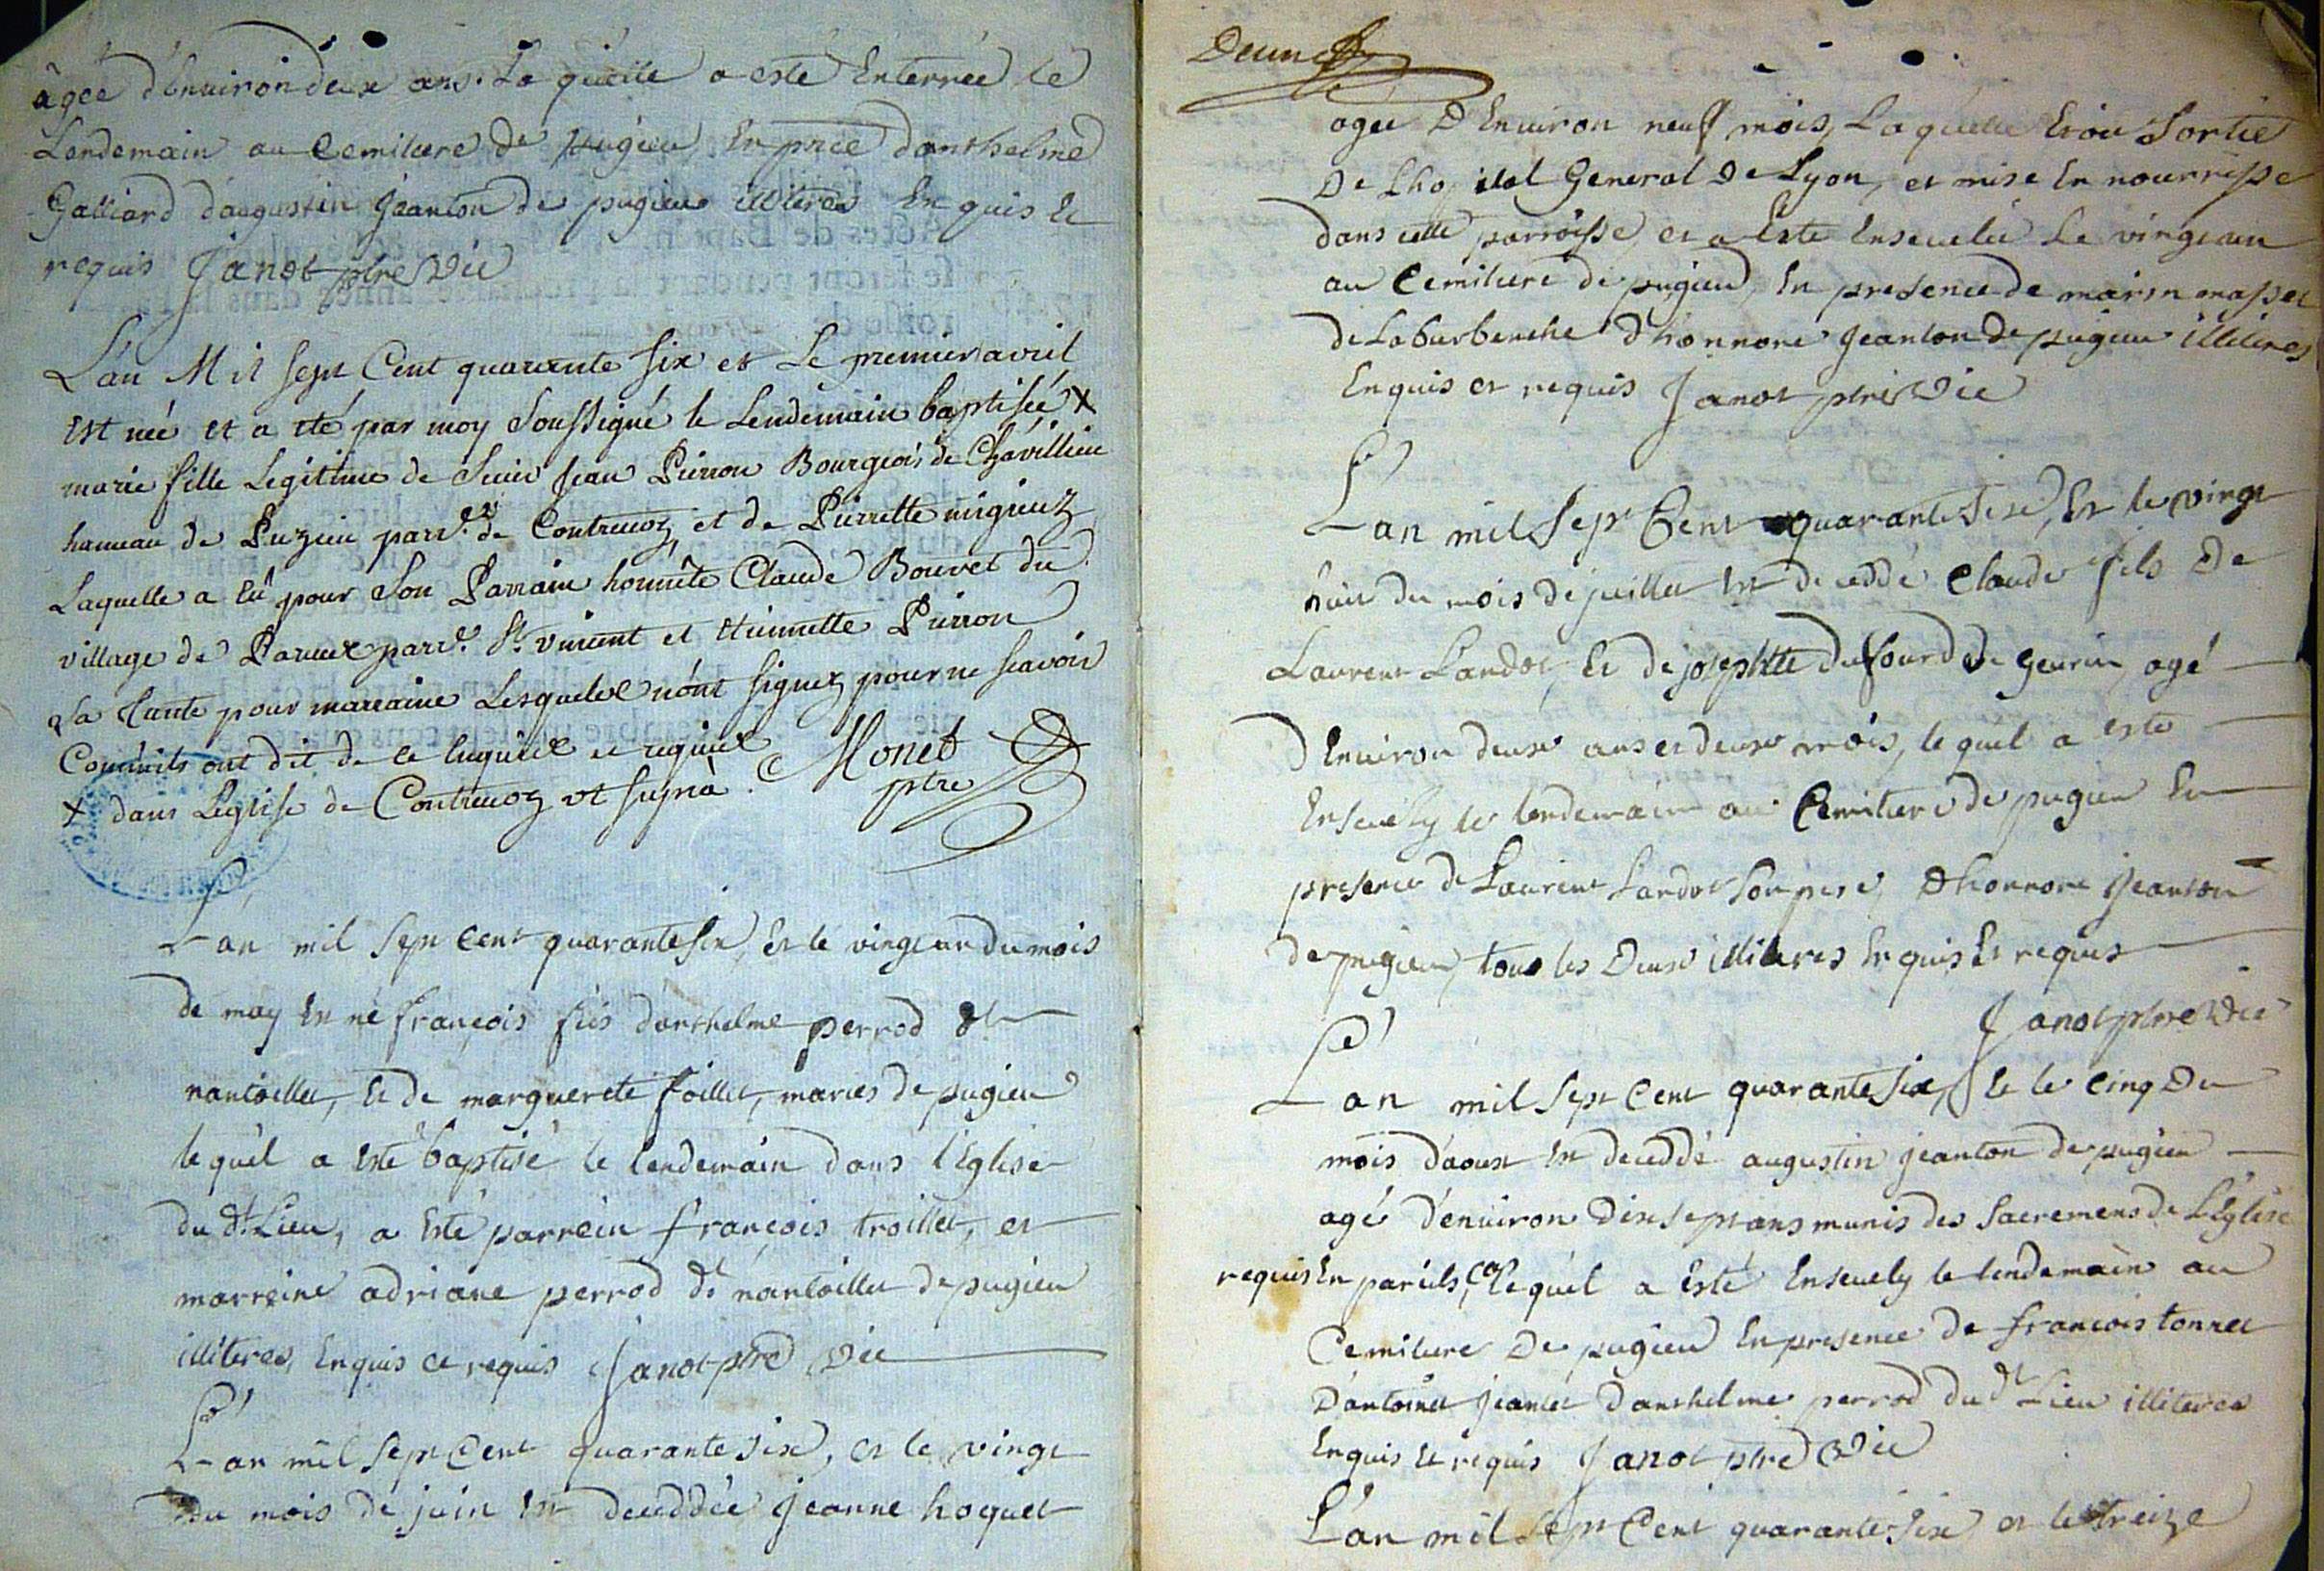 âgée d'Environ deux ans. La quelle a esté Enterrée le
Lendemain au Cemitiere de pugieu, En pnce d'anthelme
Galliard d'augustin Jeanton de pugieu illiteres Enquis Et
requis Janot ptre Vic
L'an Mil sept Cent quarante six et Le premier avril
Est née et a été par moy soussigné le Lendemain baptisée X
marie fille Legitime de Sieur Jean Pierron Bourgeois de Chavillieu
hameau de Puzieu parr.e de Contrevoz et de Pierrette migieuz
Laquelle a Eû pour Son Parrain honnête Claude Bouvet du
village de parr.e St. vincent et Etiennette Pierron
Sa Tante pour marraine Lesquels n'ont signez pour ne scavoir
Comm'ils ont dit de ce Enquis et requis Monet
ptre
X dans L'eglise de Contrevoz ut suprà.
L'an mil sept cent quarante six, Et le vingt un du mois
de may Est né françois fils d'anthelme perrod dt
nantoillet, Et de marguerete foillet, maries de pugieu
le quel a esté baptisé le lendemain dans l'Eglise
du dt. Lieu, a Esté parrein françois troillet, et
marreine adriane perrod dt nantoillet de pugieu
illiteres, Enquis et requis Janot ptre Vic
L'an mil sept Cent quarante six, et le vingt
du mois de juin Est deceddée Jeanne hoquet
Deuns
agée D'Environ neuf mois, La quelle Etoit Sortie
De Lhopital General De Lyon, et mise En nourrisse
dans cette parroisse, et a Esté Ensevelie Le vingt un
au Cemitiere de pugieu, En presence de marin masset
de Laburbenche d'honnoré Jeanton de pugieu illiteres
Enquis et requis Janot ptre Vic
L'an mil Sept Cent quarante Six, Et le vingt
huit du mois de juillet Est deceddé Claude fils De
Laurent Landot, Et de josephte Dufour de geurin, agé
D'Environ deux ans et deux mois, le quel a esté
Ensevely le lendemain au Cemitiere de pugieu En
presence de Laurent Landot Son pere, D'honnoré Jeanton
de pugieu, tous les Deux illiteres Enquis Et requis
Janot ptre Vic
L'an mil Sept Cent quarante Six, Et le Cinq Du
mois d'aoust Est deceddé augustin jeanton de pugieu
agé d'environ Dix sept ans munis des Sacremens de L'Eglise
requis En pareils cas, le quel a Esté Ensevely le lendemain au
Cemitiere De pugieu En presence de françois tonnet
D'antoine Jeantet D'anthelme perrod du dt Lieu illiteres
Enquis Et requis Janot ptre Vic
L'an mil sept Cent quarante six et le treize